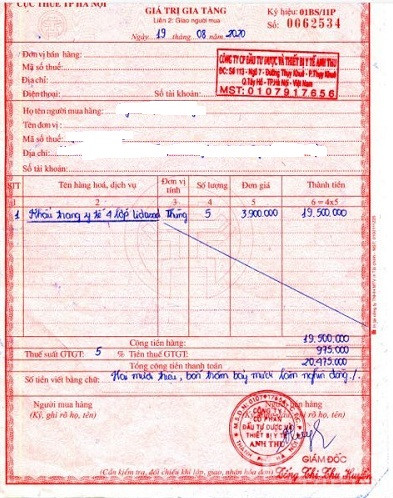 CỤC THUẾ TP HÀ NỘI
GIÁ TRỊ GIA TĂNG
Liên 2: Giao người mua
Ký hiệu: 01BS/11P
Số: 0062534
Ngày 19 tháng 08 / 2020
Đơn vị bán hàng:
Mã số thuế:
Địa chỉ:
Điện thoại: Số tài khoản:
CÔNG TY CP ĐẦU TƯ DƯỢC VÀ THIẾT BỊ Y TẾ ANH THƯ
ĐC: Số 113 - Ngõ 7 - Đường Thụy Khuê - P.Thụy Khuê
Q.Tây Hồ - TP.Hà Nội - Việt Nam
MST: 0107917656
Họ tên người mua hàng:
Tên đơn vị:
Mã số thuế
Địa chỉ:
Số tài khoản:
STT Tên hàng hoá, dịch vụ Đơn vị tính Số lượng Đơn giá Thành tiền
1 2 3 4 5 6 = 4x5
1 Khẩu trang y tế 4 lớp Thùng 5 3.900.000 19.500.000
Cộng tiền hàng: 19.500.000
Thuế suất GTGT: 5 % Tiền thuế GTGT: 975.000
Tổng cộng tiền thanh toán 20.475.000
Số tiền viết bằng chữ: Hai mươi triệu, bốn trăm bảy mươi lăm nghìn đồng /.
Người mua hàng
(Ký, ghi rõ họ, tên)
Người bán hàng
(Ký, ghi rõ họ, tên)
CÔNG TY
CỔ PHẦN
ĐẦU TƯ DƯỢC VÀ
THIẾT BỊ Y TẾ
ANH THƯ
GIÁM ĐỐC
(Cần kiểm tra, đối chiếu khi lập, giao, nhận hóa đơn)
Tống Thị Thu Huyền